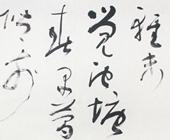 輕未
覺池塘
春草夢
階前